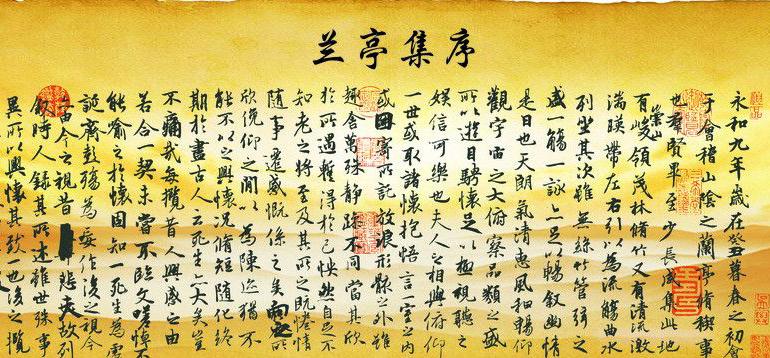 兰亭集序
永和九年歲在癸丑暮春之初
于會稽山陰之蘭亭脩稧事
也羣賢畢至少長咸集此地
有崇山峻領茂林脩竹又有清流激
湍暎帶左右引以為流觴曲水
列坐其次雖無絲竹管弦之
盛一觴一詠亦足以暢敘幽情
是日也天朗氣清惠風和暢仰
觀宇宙之大俯察品類之盛
所以遊目騁懷足以極視聽之
娛信可樂也夫人之相與俯仰
一世或取諸懷抱悟言一室之內
或因寄所託放浪形骸之外雖
趣舍萬殊靜躁不同當其欣
於所遇暫得於己怏然自足不
知老之將至及其所之既惓情
隨事遷感慨係之矣向之所
欣俛仰之間以為陳迹猶不
能不以之興懷況脩短隨化終
期於盡古人云死生亦大矣豈
不痛哉每攬昔人興感之由
若合一契未嘗不臨文嗟悼不
能喻之於懷固知一死生為虛
誕齊彭殤為妄作後之視今
亦由今之視昔悲夫故列
敘時人錄其所述雖世殊事
異所以興懷其致一也後之攬